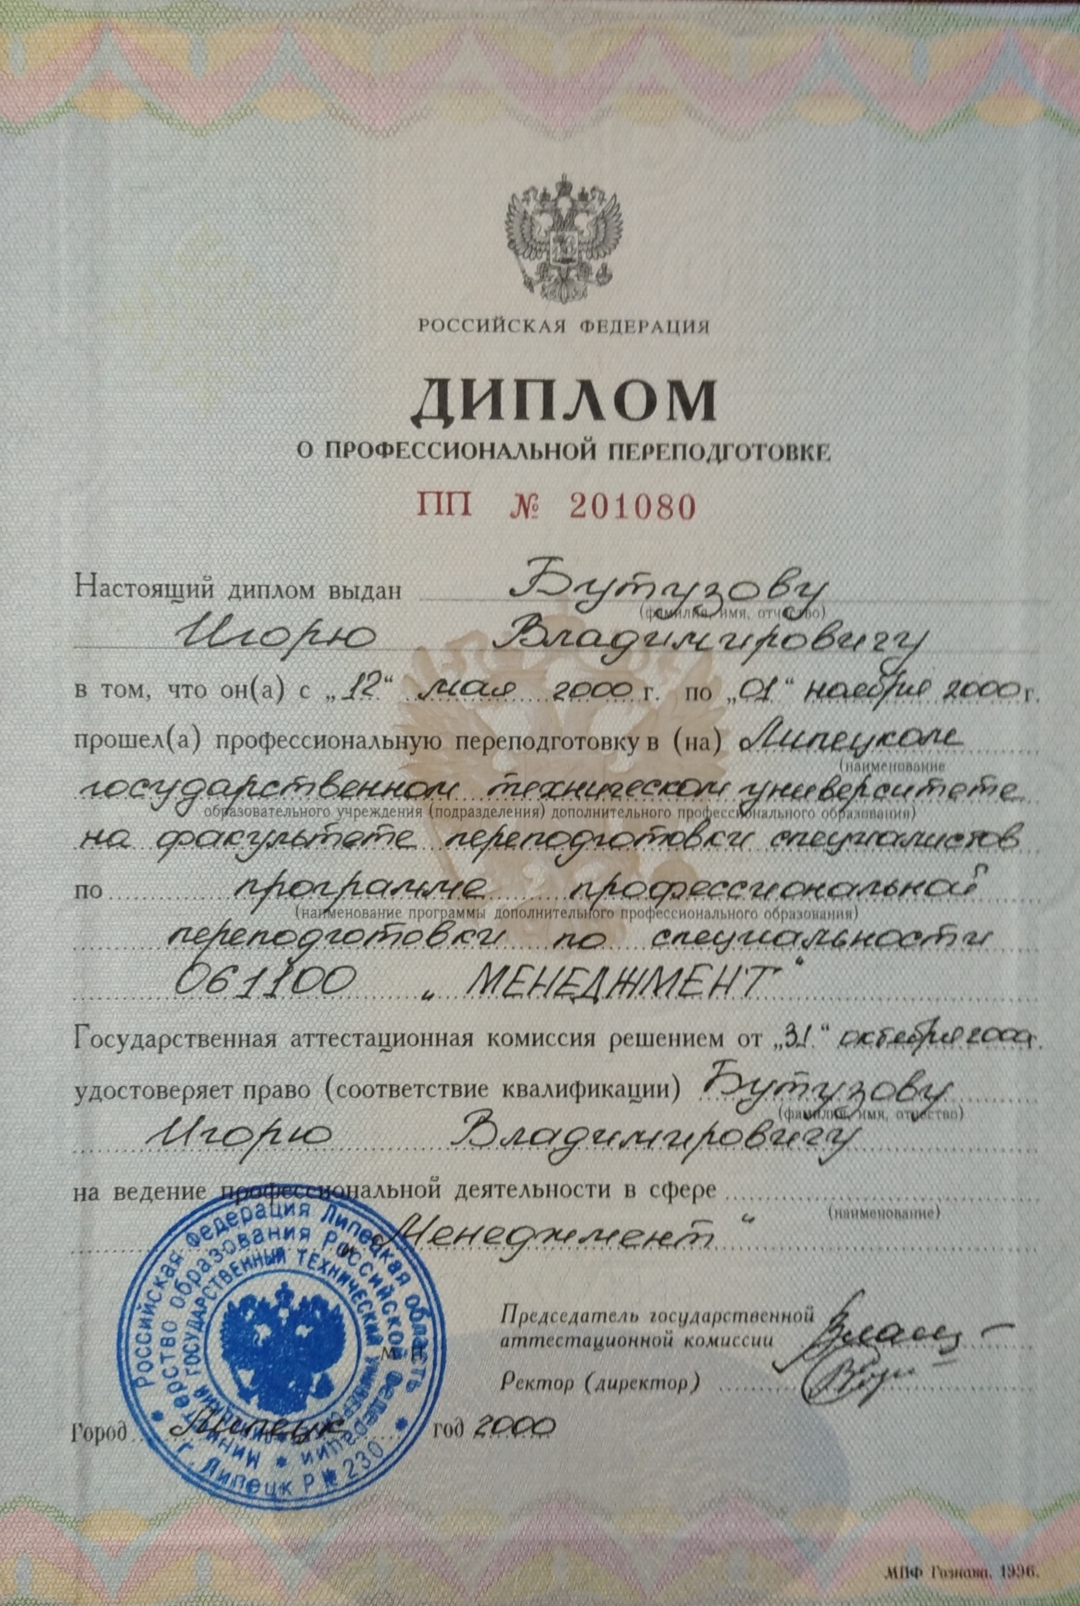 РОССИЙСКАЯ ФЕДЕРАЦИЯ
ДИПЛОМ
О ПРОФЕССИОНАЛЬНОЙ ПЕРЕПОДГОТОВКЕ
ПП № 201080
Настоящий диплом выдан Бутузову
(фамилия, имя, отчество)
Игорю Владимировичу
в том, что он(а) с „12“ мая 2000 г. по „01“ ноября 2000 г.
прошел(а) профессиональную переподготовку в (на) Липецком
(наименование
государственном техническом университете
образовательного учреждения (подразделения) дополнительного профессионального образования)
на факультете переподготовки специалистов
по программе профессиональной
(наименование программы дополнительного профессионального образования)
переподготовки по специальности
061100 „МЕНЕДЖМЕНТ“
Государственная аттестационная комиссия решением от „31“ октября 2000г.
удостоверяет право (соответствие квалификации) Бутузову
(фамилия, имя, отчество)
Игорю Владимировичу
на ведение профессиональной деятельности в сфере
(наименование)
„Менеджмент“
Председатель государственной
аттестационной комиссии
Ректор (директор)
М.П.
Город Липецк год 2000
Российская Федерация Липецкая область
Министерство образования Российской Федерации
ГОСУДАРСТВЕННЫЙ ТЕХНИЧЕСКИЙ УНИВЕРСИТЕТ
г. Липецк Р № 230
МПФ Гознака. 1996.